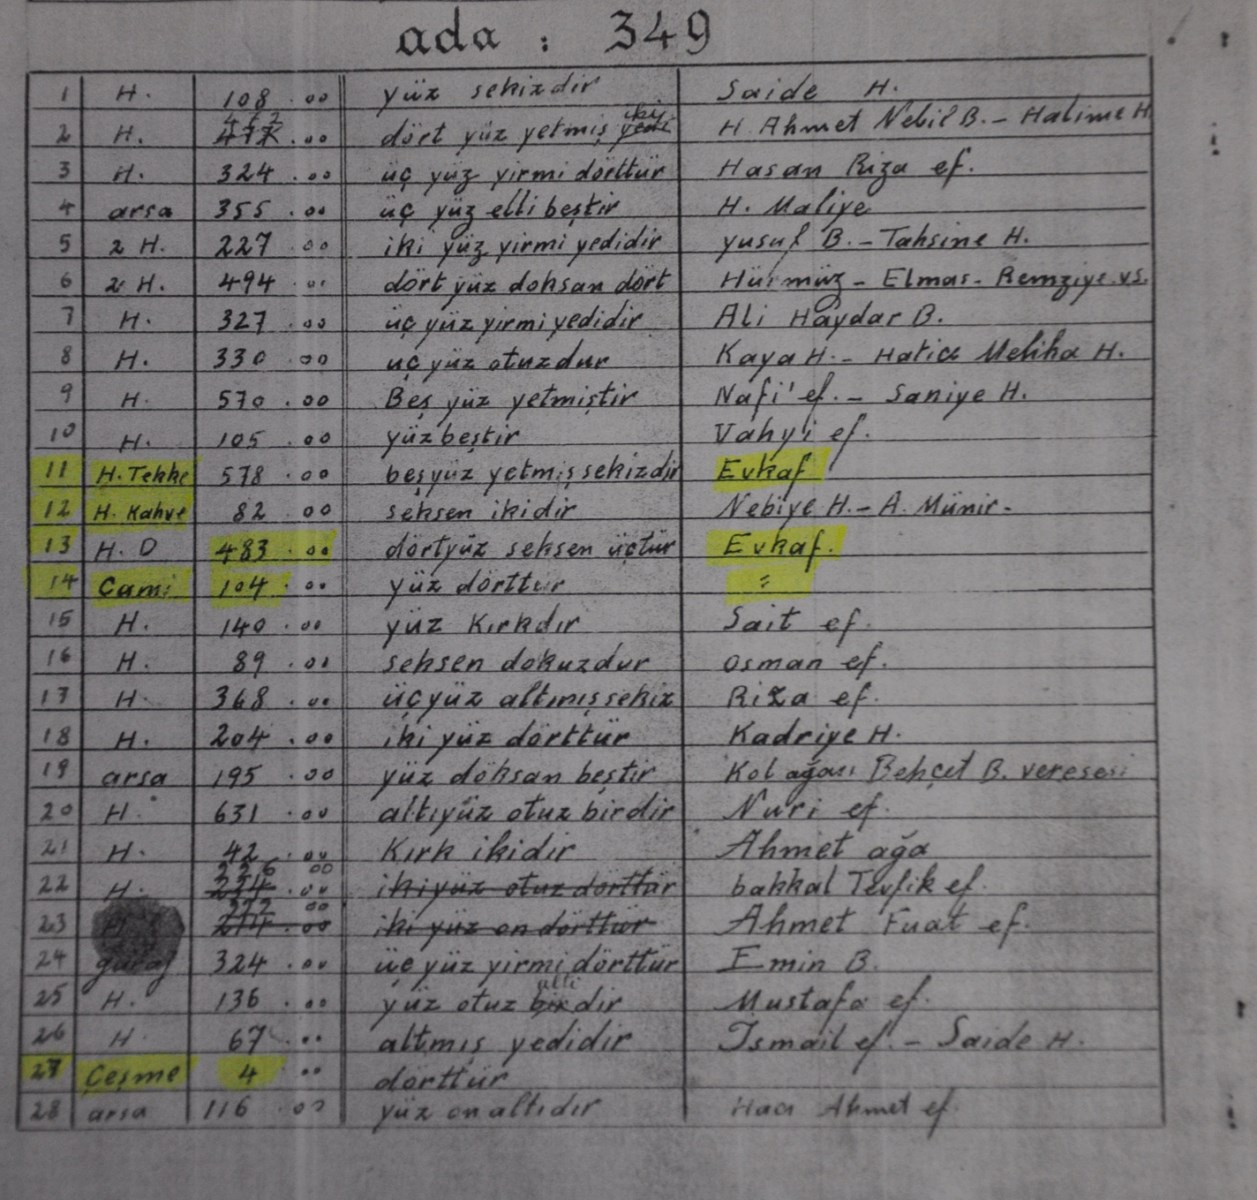 ada : 349
1 H. 108 .00 yüz sekizdir Saide H.
2 H. 472 477 .00 dört yüz yetmiş iki yedi H. Ahmet Nebil B. - Halime H.
3 H. 324 .00 üç yüz yirmi dörttür Hasan Riza ef.
4 arsa 355 .00 üç yüz elli beştir H. Maliye
5 2 H. 227 .00 iki yüz yirmi yedidir yusuf B. - Tahsine H.
6 2 H. 494 .00 dört yüz doksan dört Hürmüz - Elmas - Remziye vs.
7 H. 327 .00 üç yüz yirmi yedidir Ali Haydar B.
8 H. 330 .00 üç yüz otuzdur Kaya H. - Hatice Meliha H.
9 H. 570 .00 Beş yüz yetmiştir Nafi' ef. - Saniye H.
10 H. 105 .00 yüz beştir Vahyi ef.
11 H. Tekke 578 .00 beşyüz yetmiş sekizdir Evkaf
12 H. Kahve 82 .00 seksen ikidir Nebiye H. - A. Münir.
13 H. D 483 .00 dörtyüz seksen üçtür Evkaf.
14 Cami 104 .00 yüz dörttür "
15 H. 140 .00 yüz Kırkdır Sait ef.
16 H. 89 .00 seksen dokuzdur osman ef.
17 H. 368 .00 üçyüz altmış sekiz Riza ef.
18 H. 204 .00 iki yüz dörttür Kadriye H.
19 arsa 195 .00 yüz doksan beştir Kol ağası Behçet B. veresesi
20 H. 631 .00 altıyüz otuz birdir Nuri ef.
21 H. 42 .00 Kırk ikidir Ahmet ağa
22 H. 226 00 234 .00 ikiyüz otuz dörttür bakkal Tevfik ef.
23 H 222 00 214 .00 iki yüz on dörttür Ahmet Fuat ef.
24 garaj 324 .00 üç yüz yirmi dörttür Emin B.
25 H. 136 .00 yüz otuz bir altı dır Mustafa ef.
26 H 67 .00 altmış yedidir Ismail ef. - Saide H.
27 Çeşme 4 .00 dörttür
28 arsa 116 .00 yüz on altıdır Hacı Ahmet ef.